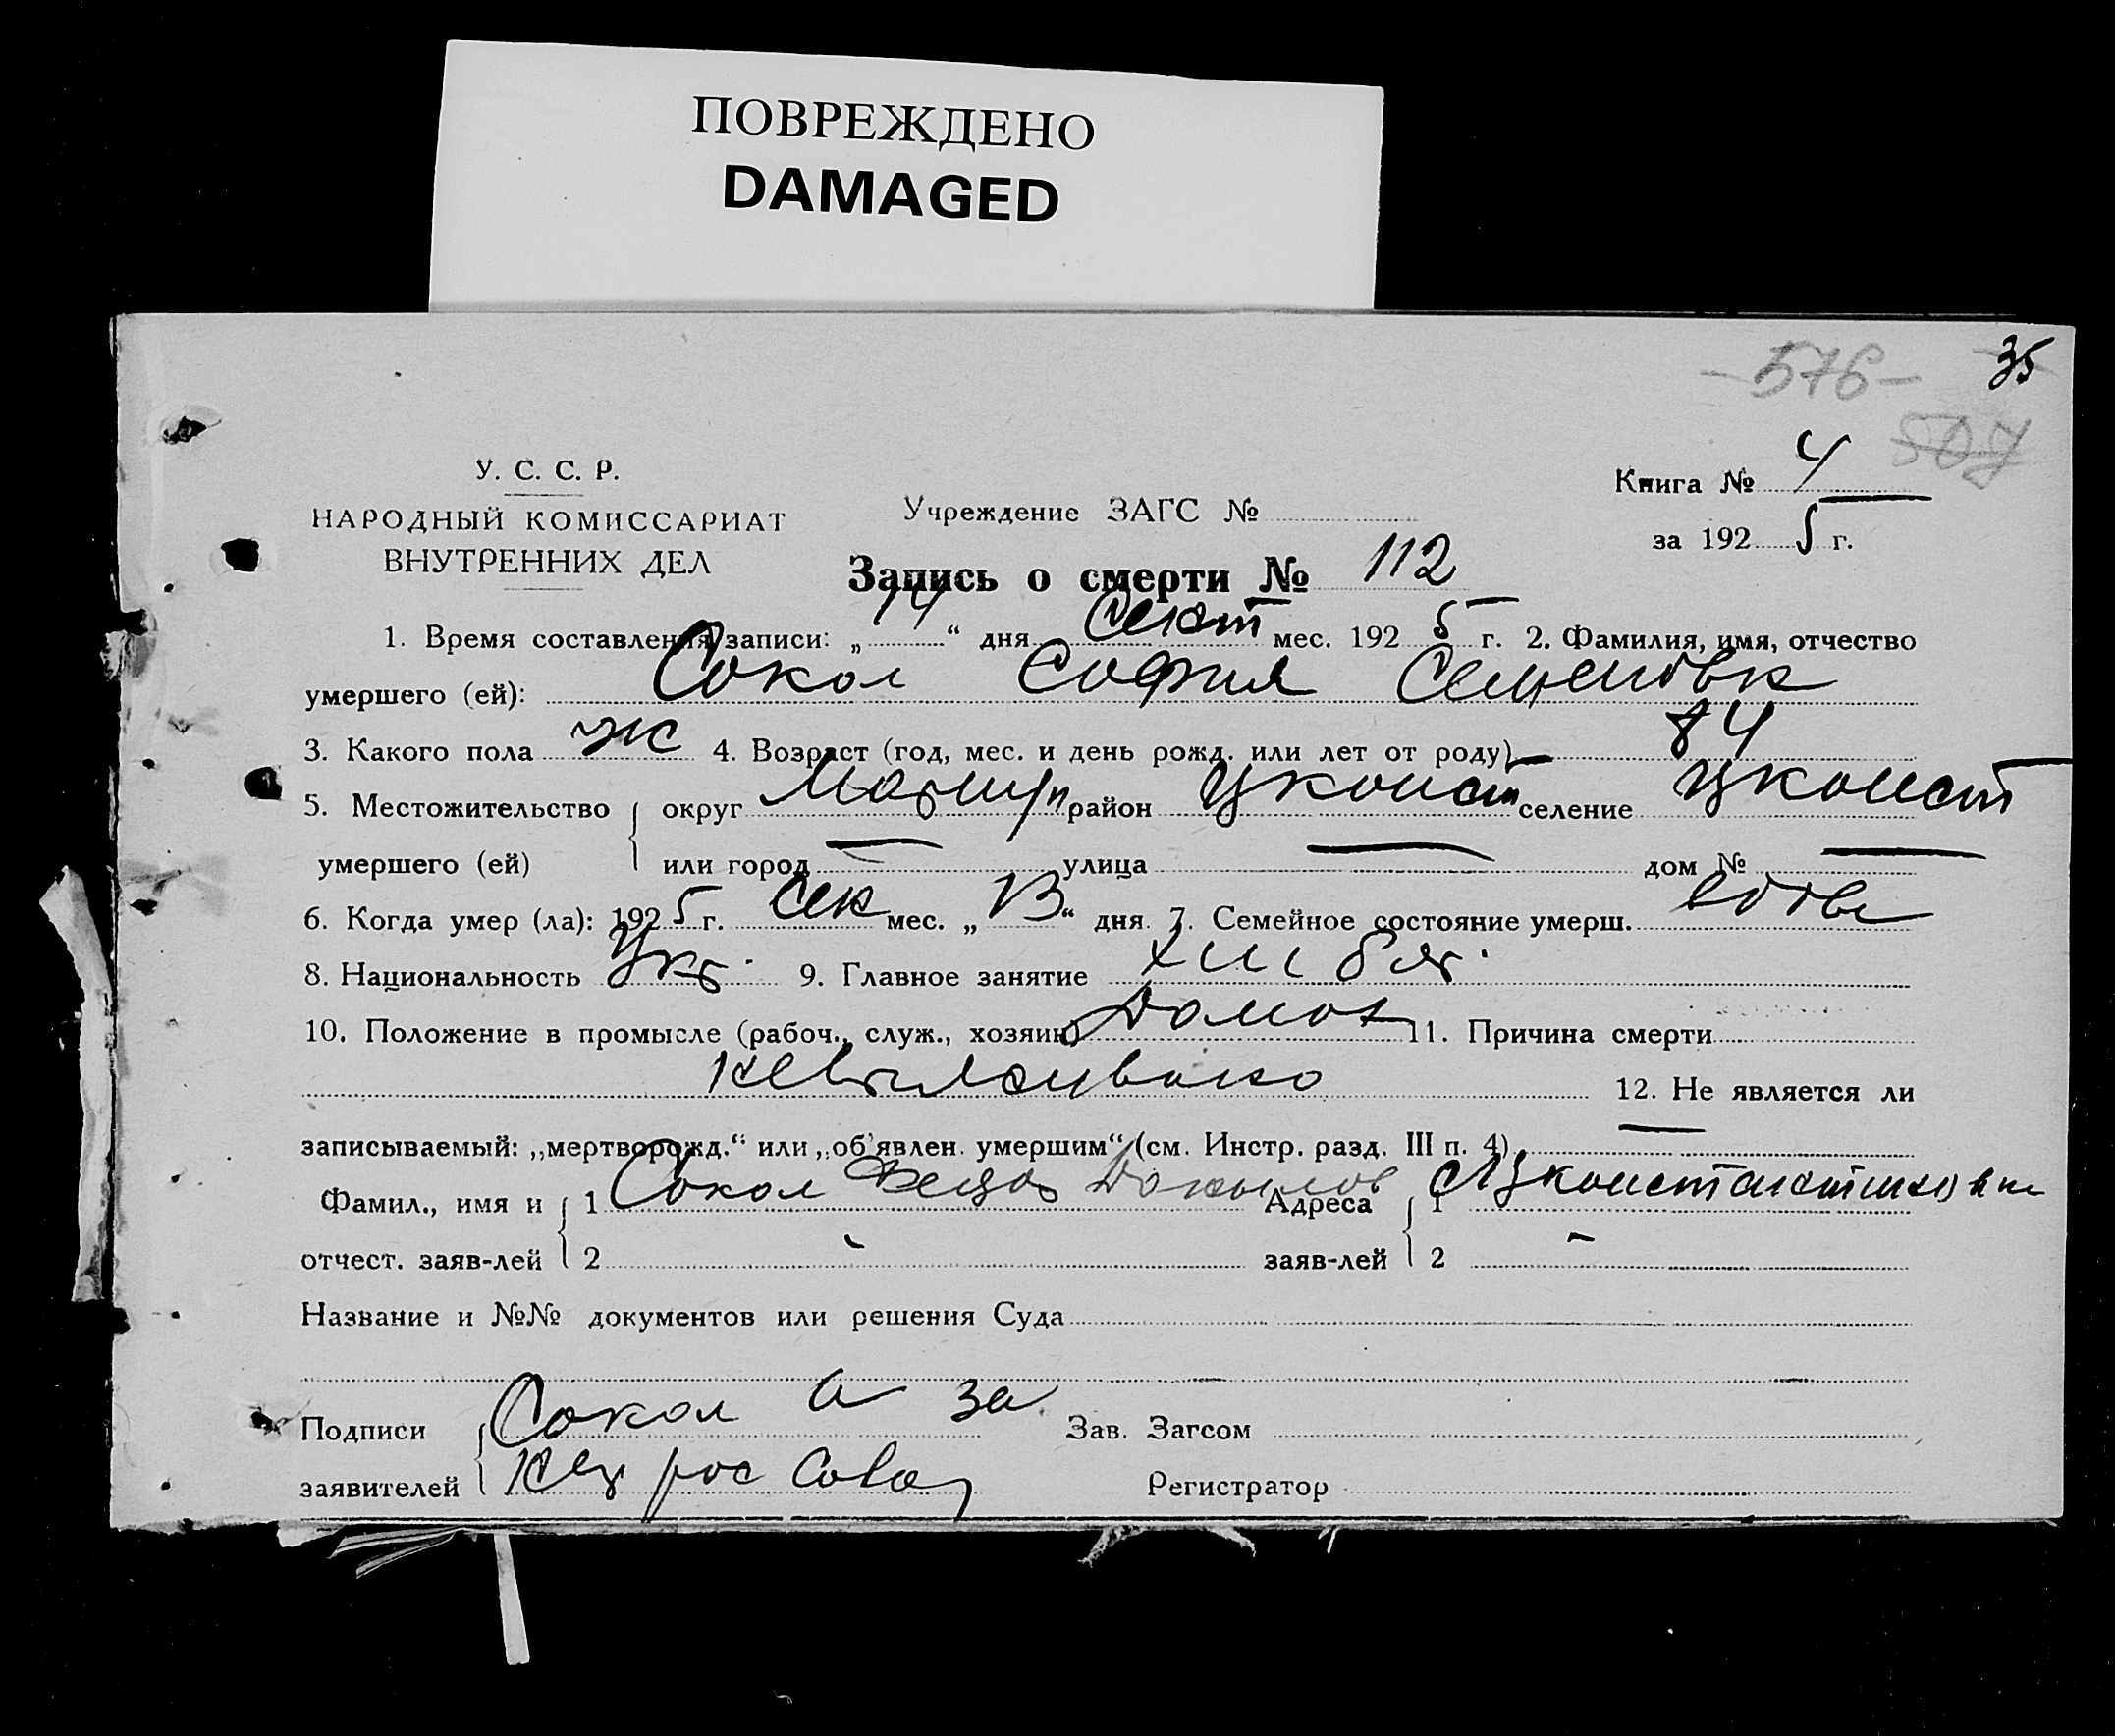 ПОВРЕЖДЕНО
DAMAGED
35
-576-
507
У. С. С. Р.
НАРОДНЫЙ КОМИССАРИАТ
ВНУТРЕННИХ ДЕЛ
Учреждение ЗАГС №
Книга № 4
за 1925 г.
Запись о смерти № 112
1. Время составления записи: „14“ дня Сент мес. 1925 г. 2. Фамилия, имя, отчество
умершего (ей): Сокол София Семеновн
3. Какого пола ж 4. Возраст (год, мес. и день рожд. или лет от роду) 84
5. Местожительство округ Мариуп район Уконст селение Уконст
умершего (ей) или город — улица — дом № —
6. Когда умер (ла): 1925 г. Сен мес. „13“ дня 7. Семейное состояние умерш. вдова
8. Национальность Укр. 9. Главное занятие
10. Положение в промысле (рабоч., служ., хозяин) Домох 11. Причина смерти
12. Не является ли
записываемый: „мертворожд.“ или „об'явлен. умершим“ (см. Инстр. разд. III п. 4) —
Фамил., имя и 1 Сокол Федор Адреса 1
отчест. заяв-лей 2 - заяв-лей 2 -
Название и №№ документов или решения Суда
Подписи Сокол а за Зав. Загсом
заявителей Регистратор